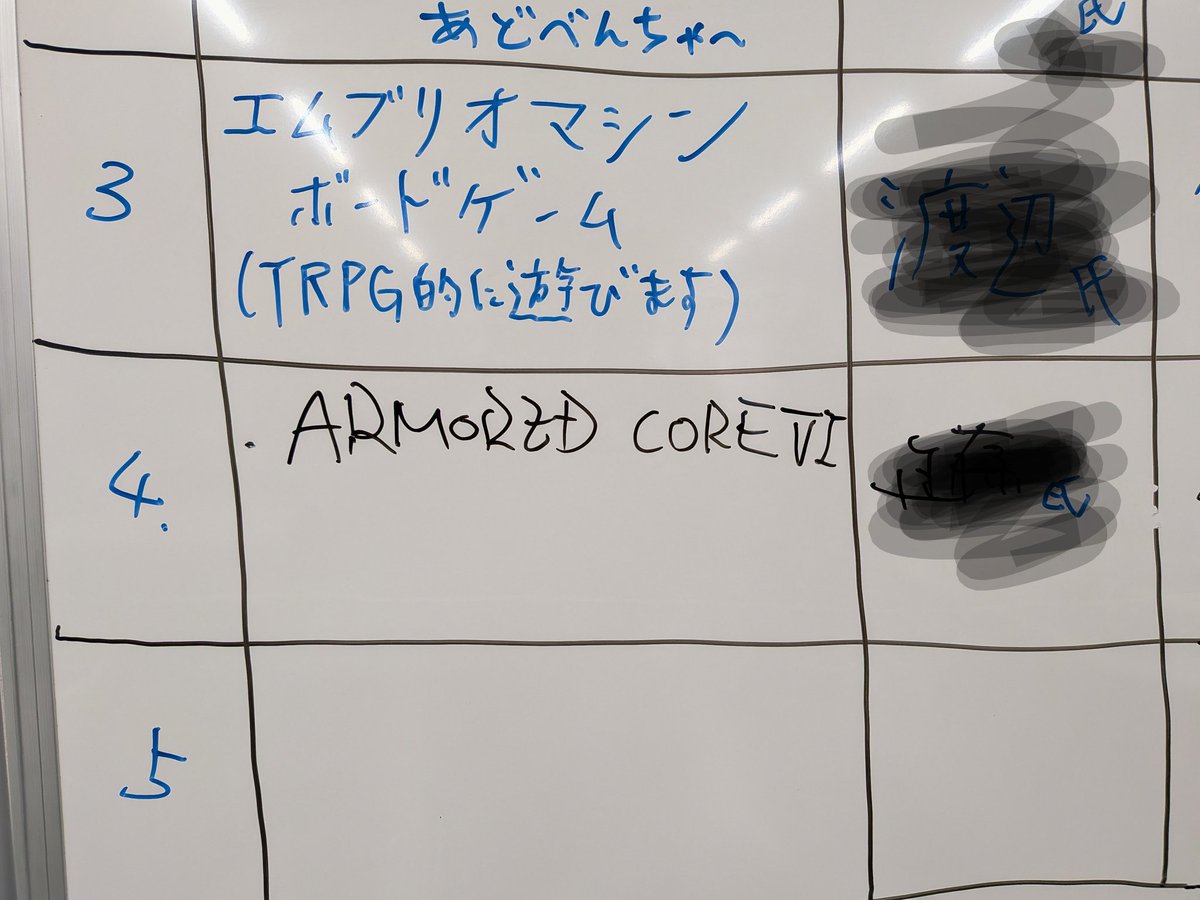 あどべんちゃー
氏
3
エムブリオマシン
ボードゲーム
(TRPG的に遊びます)
氏
4.
・ARMORED CORE VI
氏
5